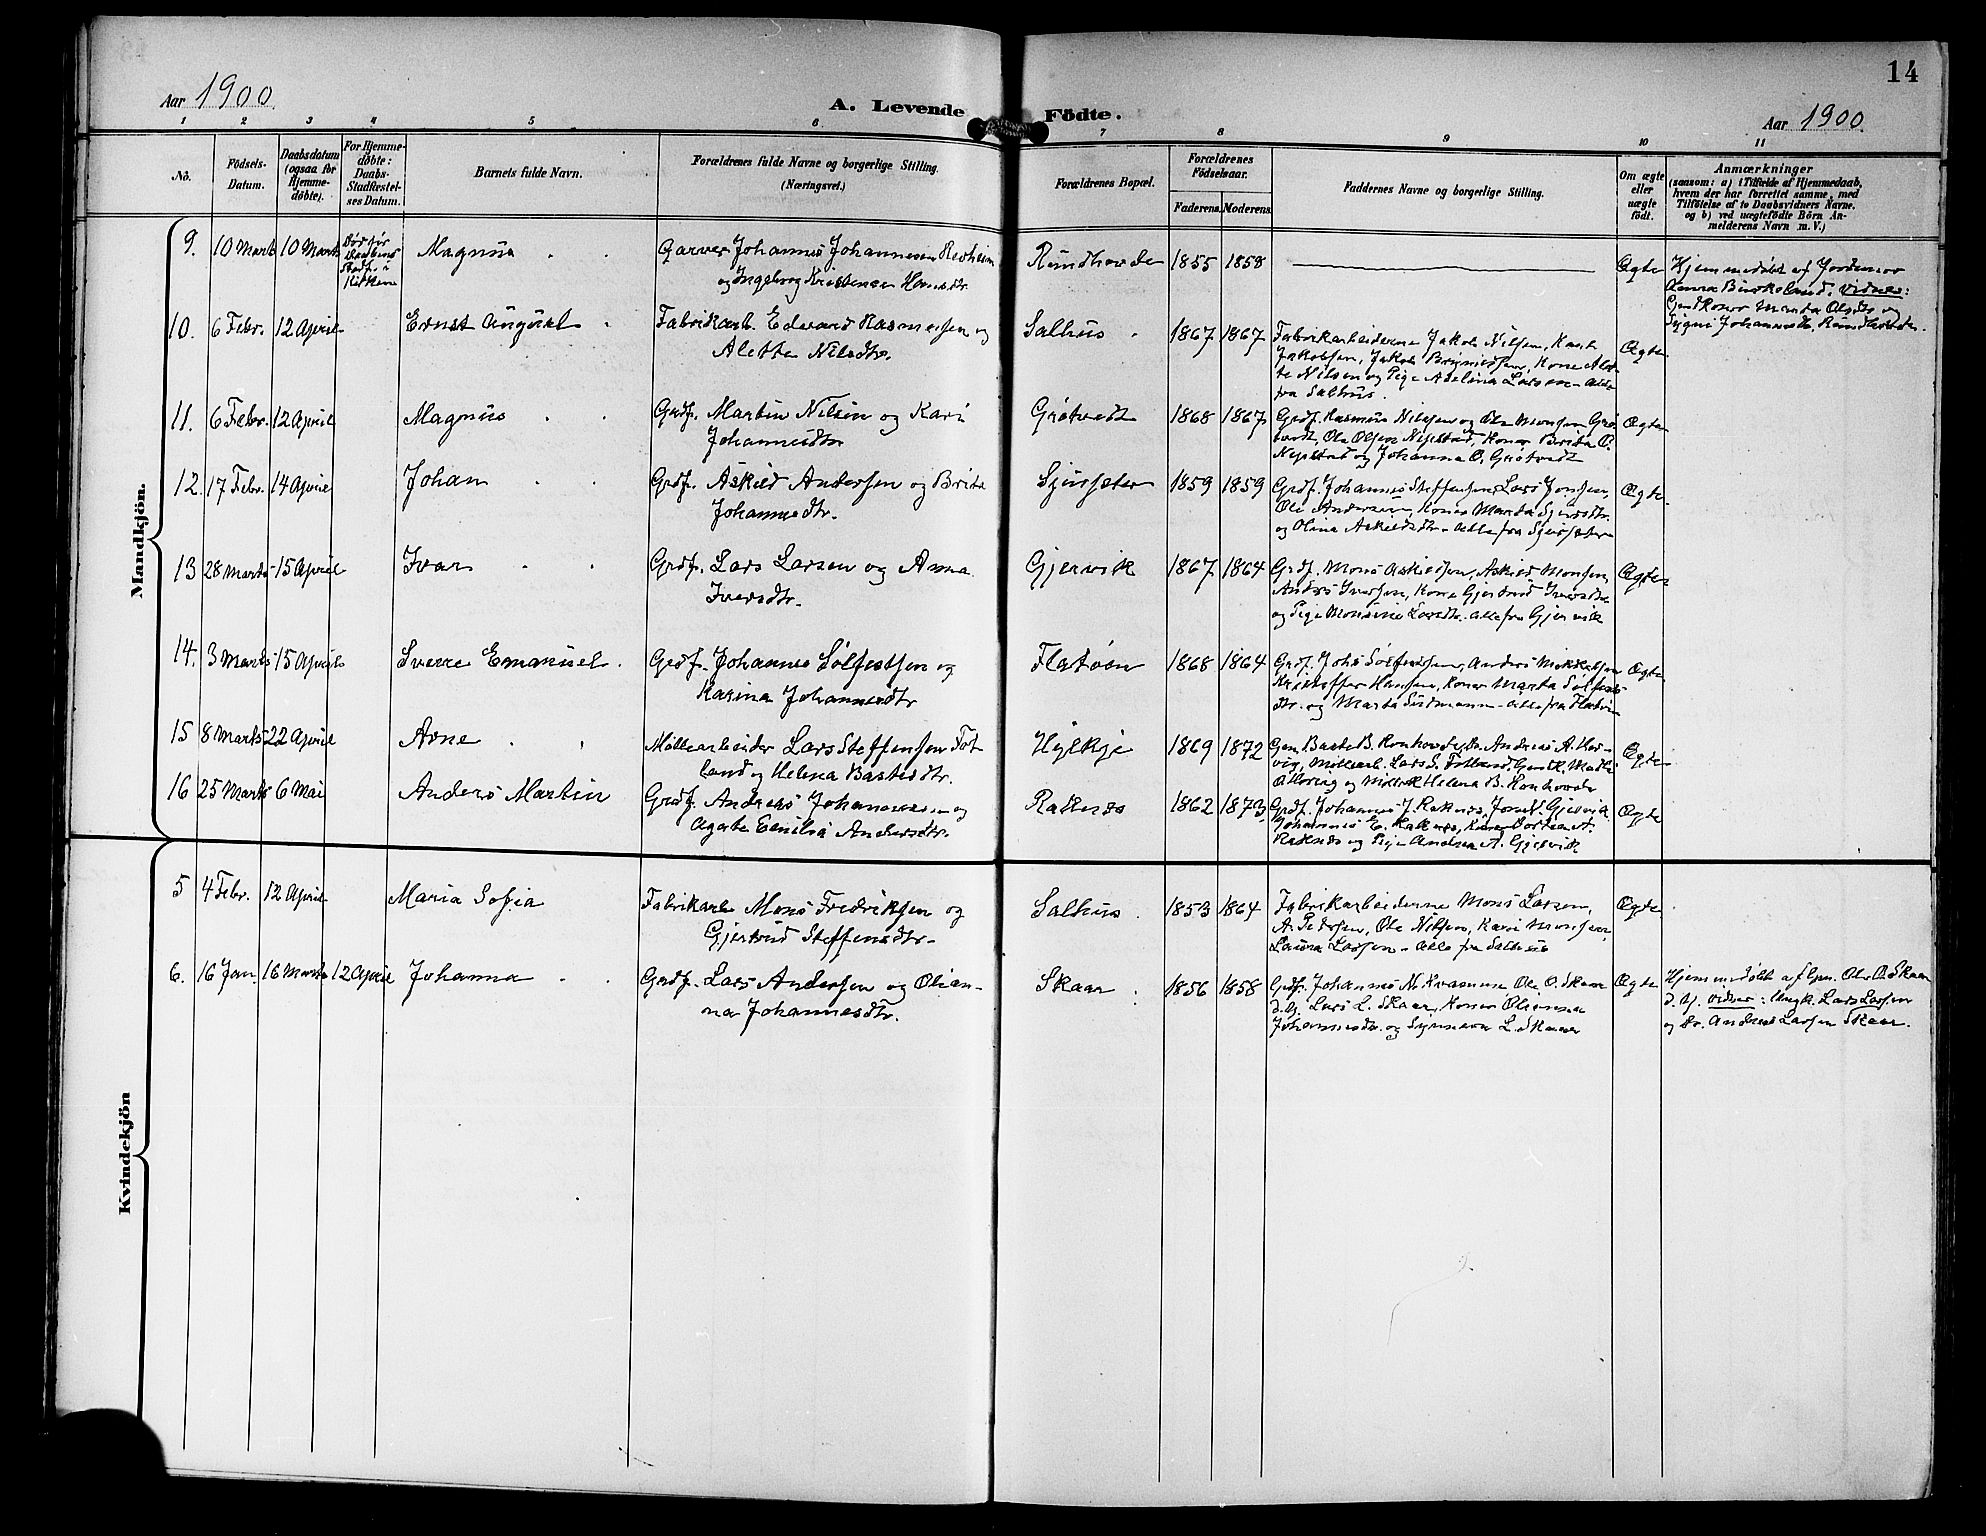 14
Aar 1900.
A. Levende Födte.
Aar 1900.
1 2 3 4 5 6 7 8 9 10 11
No.
Födsels-
Datum.
Daabsdatum
(ogsaa for
Hjemme-
döbte).
For Hjemme-
döbte:
Daabs-
Stadfæstel-
ses Datum.
Barnets fulde Navn.
Forældrenes fulde Navne og borgerlige Stilling.
(Næringsvei.)
Forældrenes Bopæl.
Forældrenes
Födselsaar.
Faderens. Moderens.
Faddernes Navne og borgerlige Stilling.
Om ægte
eller
uægte
födt.
Anmærkninger
(saasom: a) i Tilfælde af Hjemmedaab,
hvem der har forrettet samme, med
Tilföielse af to Daabsvidners Navne,
og b) ved uægtefödte Börn An-
melderens Navn m. V.)
Mandkjön.
9. 10 Marts 10 Marts Död før Daabens Stadf. i Kirken Magnus
Garver Johannes Johannesen Redheim
og Ingeborg Kristense Hansdtr
Rundhovde 1855 1858 Ægte
Hjemmedøbt af Jordemor
Laura Birkeland. Vidner:
Gjendkone Marta Olsdtr og
Johannesdtr. Rundhovde.
10. 6 Febr. 12 April Ernst August
Fabrikarb. Edvard Rasmussen og
Alette Nilsdtr.
Salhus 1867 1867
Fabrikarbeiderne Jakob Nilsen, Karl
Jakobsen, Jakob Brynildsen, Kone Alet-
te Nilsen og Pige Adelina Larsen - alle
fra Salhus.
Ægte
11. 6 Febr. 12 April Magnus
Grdf. Martin Nilsen og Kari
Johannesdtr
Grøtvedt 1868 1867
Grdf. Rasmus Nilssen og Ole Monsen Grøt-
vedt, Ole Olsen Njelstad, Koner Brita O.
Njelstad og Johanna O. Grøtvedt
Ægte
12. 17 Febr. 14 April Johan
Grdf. Askild Andersen og Brita
Johannesdtr.
Sjursæter 1859 1859
Grdf. Johannes Steffensen, Lars Jonsen,
Ole Andersen, Koner Marta Sjursdtr.
og Olina Askildsdtr - alle fra Sjursæter
Ægte
13 28 Marts 15 April Ivar
Grdf. Lars Larsen og Anna
Iversdtr.
Gjervik 1867 1864
Grdf. Mons Askildsen, Askild Monsen,
Anders Iversen, Kone Gjertrud Iversdtr
og Pige Monsine Larsdtr. alle fra Gjervik
Ægte
14. 3 Marts 15 April Sverre Emanuel
Grdf. Johannes Solfestsen og
Karina Johannesdtr
Flatøen 1868 1864
Grdf. Johs Solfestsen, Anders Mikkelsen
Kristoffer Hansen, Koner Marta Solfests-
dtr. og Marta Sudmann - alle fra Flatøen
Ægte
15 8 Marts 22 April Arne
Møllearbeider Lars Steffensen Fot-
land og Helena Bastesdtr.
Hylkje 1869 1872
Grm. Baste B. Ronhovde, Andreas A. Hor-
vig, Møllearb. Lars S. Fotland,
og Helena B. Ronhovde
Ægte
16 25 Marts 6 Mai Anders Martin
Grdf. Andreas Johannessen og
Agate Emilia Andersdtr.
Raknes 1862 1873
Grdf. Johannes J. Raknes, Gjervik
Johannes E. Raknes, A.
Raknes og Pige Andrea A. Gjervik
Ægte
Kvindekjön
5 4 Febr. 12 April Maria Sofia
Fabrikarb Mons Fredriksen og
Gjertrud Steffensdtr-
Salhus 1853 1864
Fabrikarbeiderne Mons Larsen,
A. Pedersen, Ole Nilsen, Kari Monsen,
Laura Larsen - alle fra Salhus
Ægte
6. 16 Jan. 16 Marts 12 April Johanna
Grdf. Lars Andersen og Olian-
na Johannesdtr.
Skaar 1856 1858
Grdf. Johannes N. Kvamme Ole O. Skaar
d.y. Lars L. Skaar, Koner Olianna
Johannesdtr. og Synneva L. Skaar
Ægte
Hjemmedøbt af Gm. Ole O. Skaar
d. y. Vidner: Ungk. Lars Larsen
og Br. Andreas Larsen Skaar.